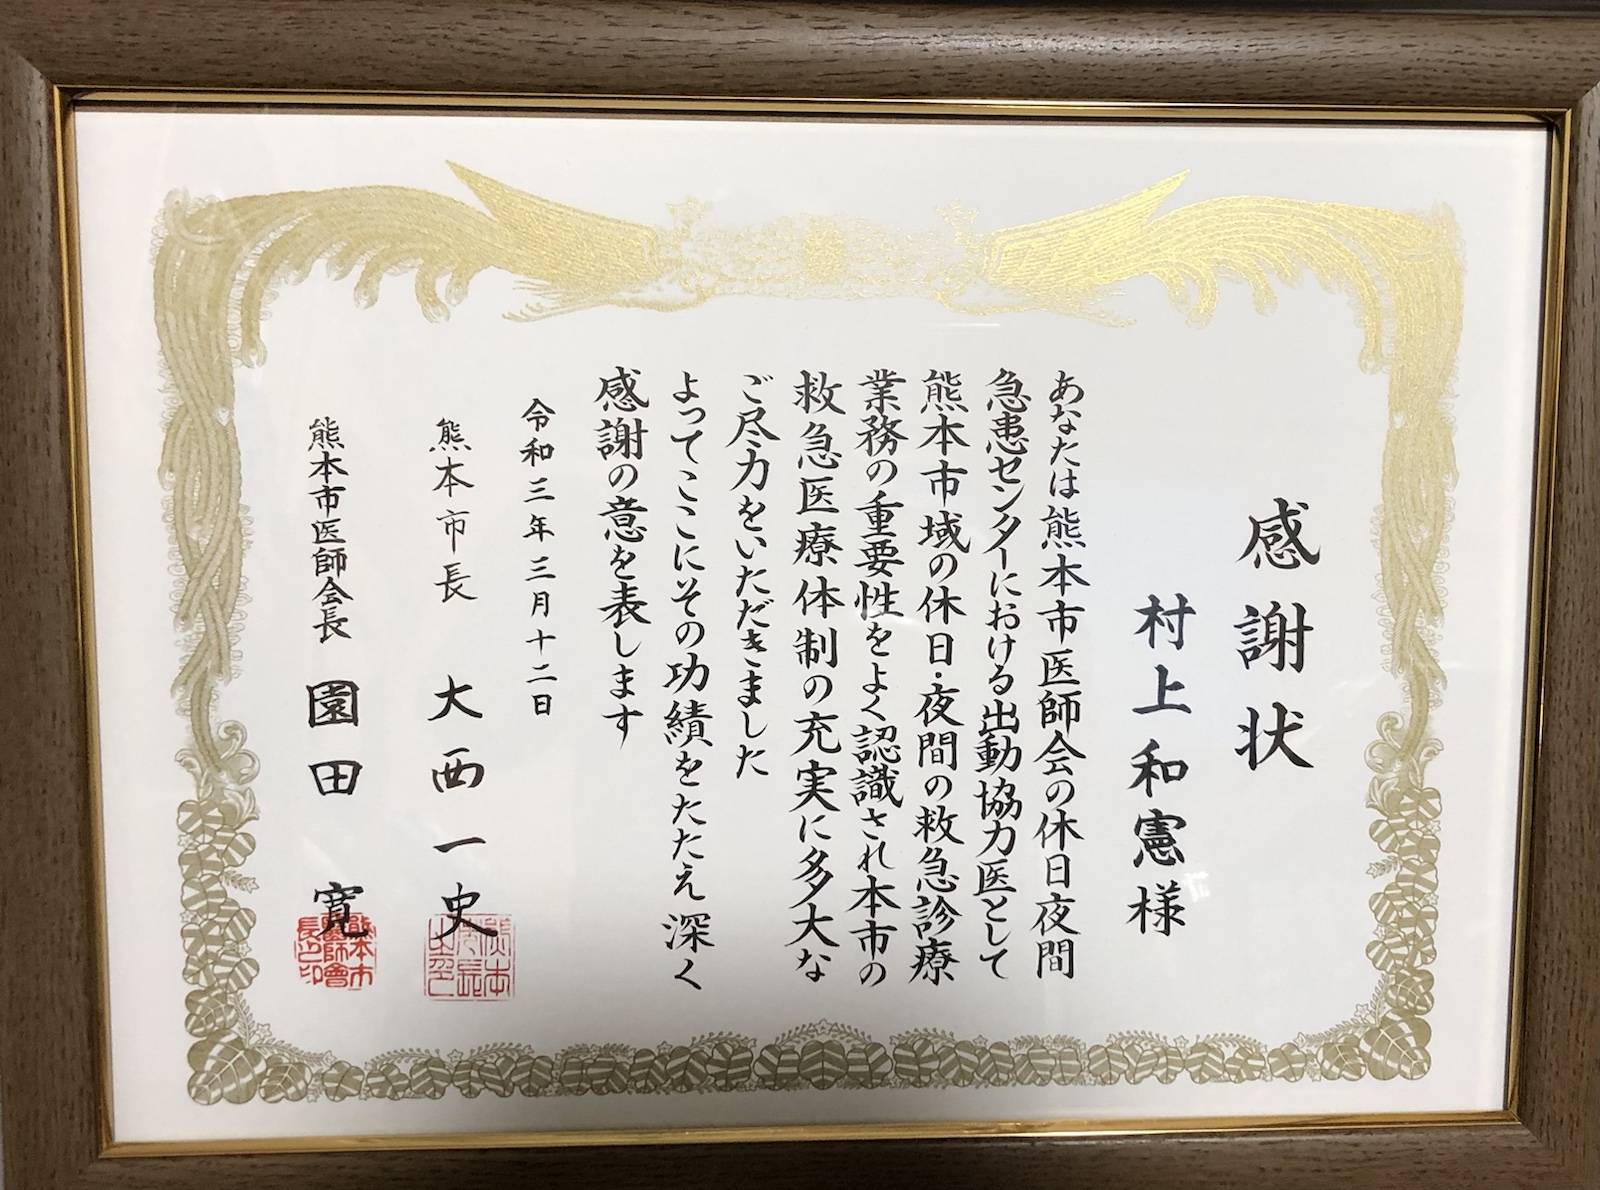 感謝状
村上和憲様
あなたは熊本市医師会の休日夜間
急患センターにおける出動協力医として
熊本市域の休日・夜間の救急診療
業務の重要性をよく認識され本市の
救急医療体制の充実に多大な
ご尽力をいただきました
よってここにその功績をたたえ深く
感謝の意を表します
令和三年三月十二日
熊本市長 大西一史
熊本市医師会長 園田寛
熊本市
醫師會
長之印